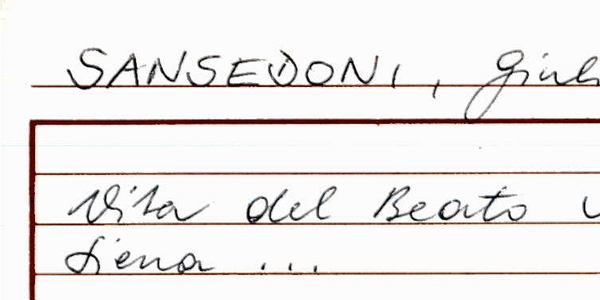 SANSEDONI, Giul
Vita del Beato
Siena ...